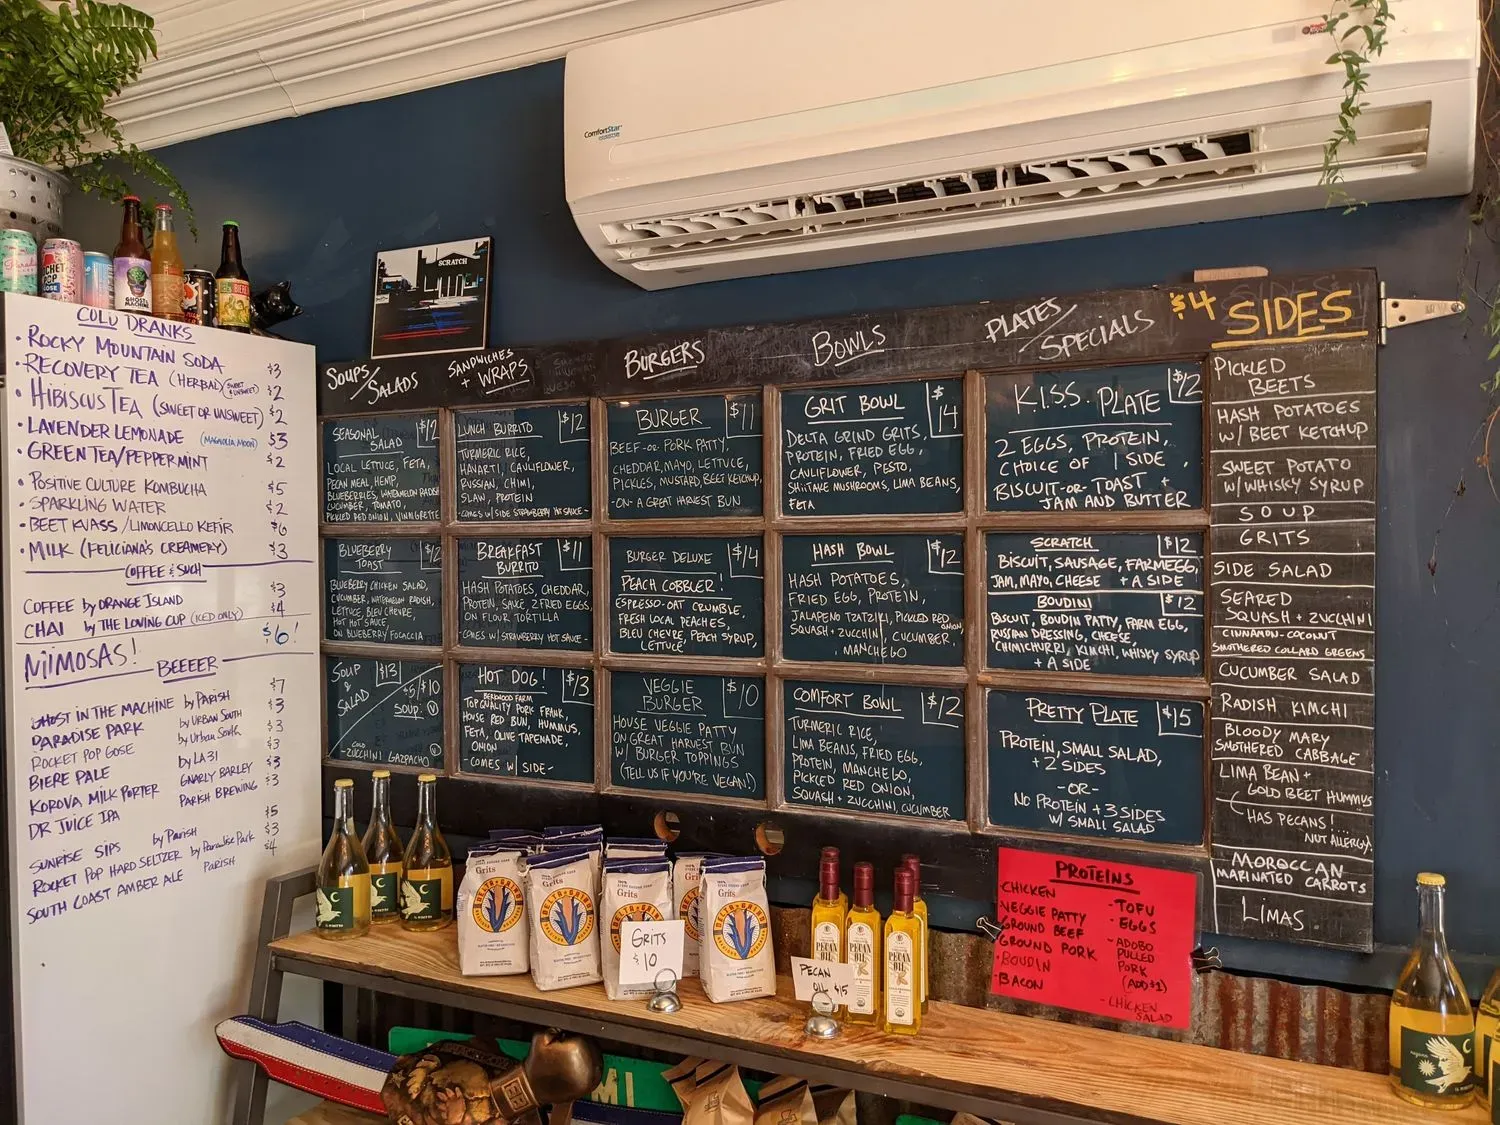 ComfortStar
SCRATCH
COLD DRANKS
• ROCKY MOUNTAIN SODA $3
• RECOVERY TEA (HERBAL) (SWEET + UNSWEET) $2
• HIBISCUS TEA (SWEET OR UNSWEET) $2
• LAVENDER LEMONADE (MAGNOLIA MOON) $3
• GREEN TEA/PEPPERMINT $2
• POSITIVE CULTURE KOMBUCHA $5
• SPARKLING WATER $2
• BEET KVASS / LIMONCELLO KEFIR $6
• MILK (FELICIANA'S CREAMERY) $3
COFFEE & SUCH
COFFEE by ORANGE ISLAND $3
CHAI by THE LOVING CUP (ICED ONLY) $4
MIMOSAS! $6!
BEEEER
GHOST IN THE MACHINE by PARISH $7
PARADISE PARK by URBAN SOUTH $3
ROCKET POP GOSE by Urban South $3
BIERE PALE by LA 31 $3
KOROVA MILK PORTER GNARLY BARLEY $3
DR JUICE IPA PARISH BREWING $3
SUNRISE SIPS by Parish $5
ROCKET POP HARD SELTZER by Paradise Park $3
SOUTH COAST AMBER ALE PARISH $4
SOUPS/SALADS
SEASONAL SALAD $12
LOCAL LETTUCE, FETA,
PECAN MEAL, HEMP,
BLUEBERRIES, WATERMELON RADISH
CUCUMBER, TOMATO,
PICKLED RED ONION, VINIGRETTE
BLUEBERRY TOAST $12
BLUEBERRY CHICKEN SALAD,
CUCUMBER, WATERMELON RADISH,
LETTUCE, BLEU CHEVRE,
HOT HOT SAUCE,
ON BLUEBERRY FOCACCIA
SOUP & SALAD $13
$5/$10
SOUP: V
COLD
-ZUCCHINI GAZPACHO V
SANDWICHES + WRAPS
LUNCH BURRITO $12
TURMERIC RICE,
HAVARTI, CAULIFLOWER,
RUSSIAN, CHIMI,
SLAW, PROTEIN
-COMES W/ SIDE STRAWBERRY HOT SAUCE-
BREAKFAST BURRITO $11
HASH POTATOES, CHEDDAR,
PROTEIN, SAUCE, 2 FRIED EGGS,
ON FLOUR TORTILLA
-COMES W/ STRAWBERRY HOT SAUCE-
HOT DOG! $13
BERKWOOD FARM
TOP QUALITY PORK FRANK,
HOUSE RED BUN, HUMMUS,
FETA, OLIVE TAPENADE,
ONION
- COMES W/ SIDE-
BURGERS
BURGER $11
BEEF -or- PORK PATTY,
CHEDDAR, MAYO, LETTUCE,
PICKLES, MUSTARD, BEET KETCHUP,
-ON- A GREAT HARVEST BUN
BURGER DELUXE $14
PEACH COBBLER!
ESPRESSO-OAT CRUMBLE,
FRESH LOCAL PEACHES,
BLEU CHEVRE, PEACH SYRUP,
LETTUCE
VEGGIE BURGER $10
HOUSE VEGGIE PATTY
ON GREAT HARVEST BUN
W/ BURGER TOPPINGS
(TELL US IF YOU'RE VEGAN!)
BOWLS
GRIT BOWL $14
DELTA GRIND GRITS,
PROTEIN, FRIED EGG,
CAULIFLOWER, PESTO,
SHIITAKE MUSHROOMS, LIMA BEANS,
FETA
HASH BOWL $12
HASH POTATOES,
FRIED EGG, PROTEIN,
JALAPENO TZATZIKI, PICKLED RED ONION,
SQUASH + ZUCCHINI, CUCUMBER,
MANCHEGO
COMFORT BOWL $12
TURMERIC RICE,
LIMA BEANS, FRIED EGG,
PROTEIN, MANCHEGO,
PICKLED RED ONION,
SQUASH + ZUCCHINI, CUCUMBER
PLATES/SPECIALS
K.I.S.S. PLATE $12
2 EGGS, PROTEIN,
CHOICE OF 1 SIDE
BISCUIT -OR- TOAST +
JAM AND BUTTER
SCRATCH $12
BISCUIT, SAUSAGE, FARM EGG,
JAM, MAYO, CHEESE + A SIDE
BOUDINI $12
BISCUIT, BOUDIN PATTY, FARM EGG,
RUSSIAN DRESSING, CHEESE,
CHIMICHURRI, KIMCHI, WHISKY SYRUP
+ A SIDE
PRETTY PLATE $15
PROTEIN, SMALL SALAD,
+ 2 SIDES
-OR-
NO PROTEIN + 3 SIDES
W/ SMALL SALAD
$4 SIDES
PICKLED
BEETS
HASH POTATOES
W/ BEET KETCHUP
SWEET POTATO
W/ WHISKY SYRUP
SOUP
GRITS
SIDE SALAD
SEARED
SQUASH + ZUCCHINI
CINNAMON-COCONUT
SMOTHERED COLLARD GREENS
CUCUMBER SALAD
RADISH KIMCHI
BLOODY MARY
SMOTHERED CABBAGE
LIMA BEAN +
GOLD BEET HUMMUS
HAS PECANS!
NUT ALLERGY
MOROCCAN
MARINATED CARROTS
LIMAS
PROTEINS
- CHICKEN
- VEGGIE PATTY
- GROUND BEEF
- GROUND PORK
- BOUDIN
- BACON
- TOFU
- EGGS
- ADOBO
PULLED
PORK
(ADD $1)
- CHICKEN
SALAD
Grits
DELTA GRIND
GRITS
$10
PECAN
OIL $15
PECAN
OIL
MI